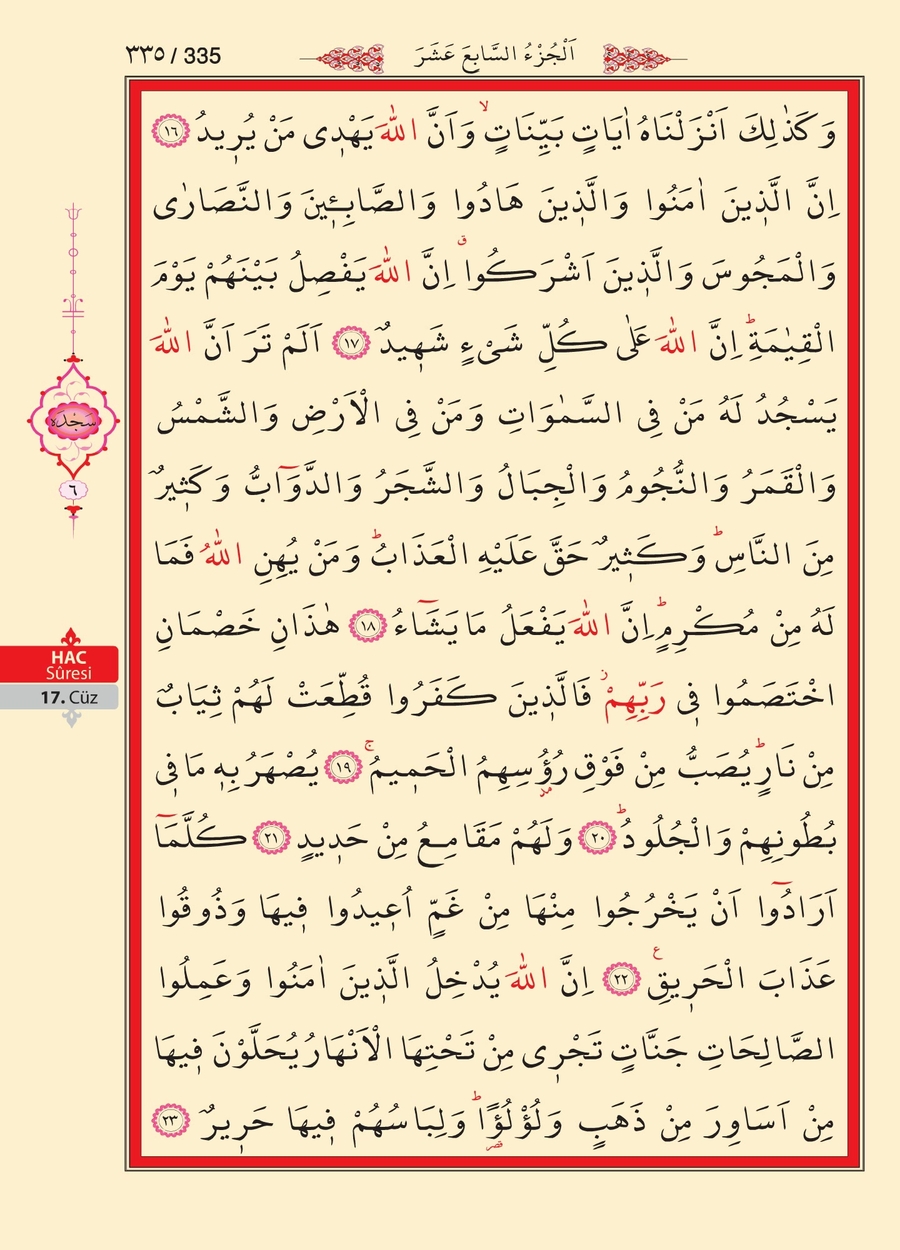 ٣٣٥ / 335
اَلْجُزْءُ السَّابِعَ عَشَرَ
وَكَذٰلِكَ اَنْزَلْنَاهُ اٰيَاتٍ بَيِّنَاتٍۙ وَاَنَّ اللّٰهَ يَهْد۪ي مَنْ يُر۪يدُ ﴿١٦﴾
اِنَّ الَّذ۪ينَ اٰمَنُوا وَالَّذ۪ينَ هَادُوا وَالصَّابِـ۪ٔينَ وَالنَّصَارٰى
وَالْمَجُوسَ وَالَّذ۪ينَ اَشْرَكُواۗ اِنَّ اللّٰهَ يَفْصِلُ بَيْنَهُمْ يَوْمَ
الْقِيٰمَةِۜ اِنَّ اللّٰهَ عَلٰى كُلِّ شَيْءٍ شَه۪يدٌ ﴿١٧﴾ اَلَمْ تَرَ اَنَّ اللّٰهَ
يَسْجُدُ لَهُ مَنْ فِي السَّمٰوَاتِ وَمَنْ فِي الْاَرْضِ وَالشَّمْسُ
وَالْقَمَرُ وَالنُّجُومُ وَالْجِبَالُ وَالشَّجَرُ وَالدَّوَٓابُّ وَكَث۪يرٌ
مِنَ النَّاسِۜ وَكَث۪يرٌ حَقَّ عَلَيْهِ الْعَذَابُۜ وَمَنْ يُهِنِ اللّٰهُ فَمَا
لَهُ مِنْ مُكْرِمٍۜ اِنَّ اللّٰهَ يَفْعَلُ مَا يَشَٓاءُ ﴿١٨﴾ هٰذَانِ خَصْمَانِ
اخْتَصَمُوا ف۪ي رَبِّهِمْۘ فَالَّذ۪ينَ كَفَرُوا قُطِّعَتْ لَهُمْ ثِيَابٌ
مِنْ نَارٍۜ يُصَبُّ مِنْ فَوْقِ رُؤُ۫سِهِمُ الْحَم۪يمُۚ ﴿١٩﴾ يُصْهَرُ بِه۪ مَا ف۪ي
بُطُونِهِمْ وَالْجُلُودُۜ ﴿٢٠﴾ وَلَهُمْ مَقَامِعُ مِنْ حَد۪يدٍ ﴿٢١﴾ كُلَّمَٓا
اَرَادُٓوا اَنْ يَخْرُجُوا مِنْهَا مِنْ غَمٍّ اُع۪يدُوا ف۪يهَا وَذُوقُوا
عَذَابَ الْحَر۪يقِ۟ ع ﴿٢٢﴾ اِنَّ اللّٰهَ يُدْخِلُ الَّذ۪ينَ اٰمَنُوا وَعَمِلُوا
الصَّالِحَاتِ جَنَّاتٍ تَجْر۪ي مِنْ تَحْتِهَا الْاَنْهَارُ يُحَلَّوْنَ ف۪يهَا
مِنْ اَسَاوِرَ مِنْ ذَهَبٍ وَلُؤْلُؤً۬اۜ وَلِبَاسُهُمْ ف۪يهَا حَر۪يرٌ ﴿٢٣﴾
سَجْدَه
٦
HAC
Sûresi
17. Cüz